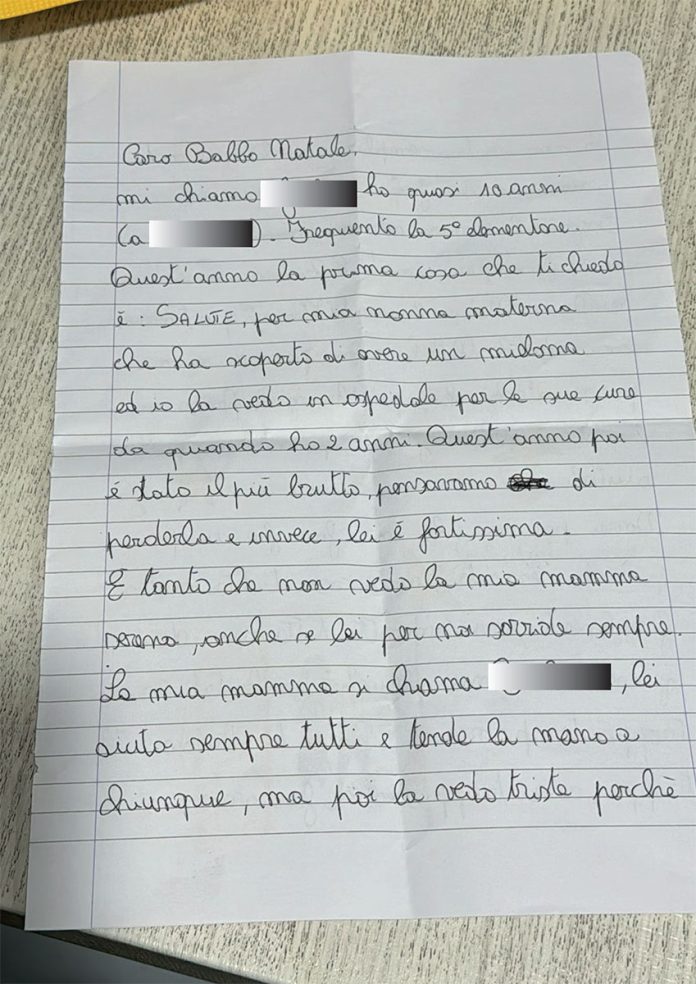 Caro Babbo Natale,
mi chiamo ho quasi 10 anni
(a ). Frequento la 5° elementare.
Quest'anno la prima cosa che ti chiedo
è: SALUTE, per mia nonna materna
che ha scoperto di avere un mieloma
ed io la vedo in ospedale per le sue cure
da quando ho 2 anni. Quest'anno poi
è stato il più brutto, pensavamo di
perderla e invece, lei è fortissima.
È tanto che non vedo la mia mamma
serena, anche se lei per noi sorride sempre.
La mia mamma si chiama , lei
aiuta sempre tutti e tende la mano a
chiunque, ma poi la vedo triste perchè